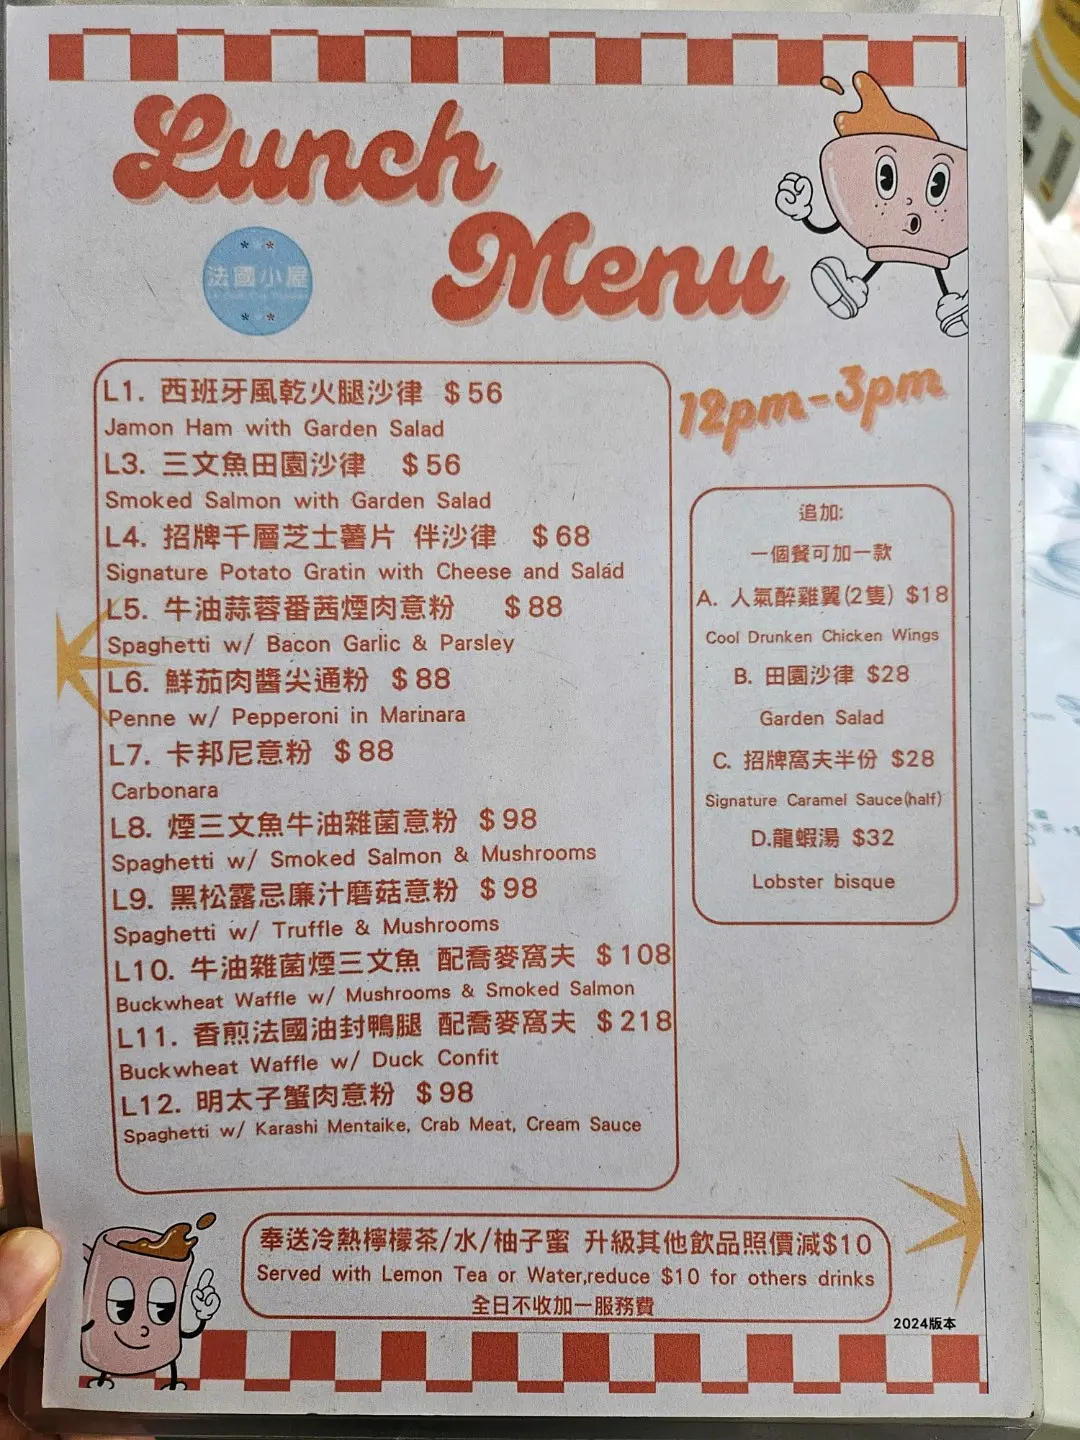 Lunch
Menu
法國小屋
12pm-3pm
L1. 西班牙風乾火腿沙律 $56
Jamon Ham with Garden Salad
L3. 三文魚田園沙律 $56
Smoked Salmon with Garden Salad
L4. 招牌千層芝士薯片 伴沙律 $68
Signature Potato Gratin with Cheese and Salad
L5. 牛油蒜蓉番茜煙肉意粉 $88
Spaghetti w/ Bacon Garlic & Parsley
L6. 鮮茄肉醬尖通粉 $88
Penne w/ Pepperoni in Marinara
L7. 卡邦尼意粉 $88
Carbonara
L8. 煙三文魚牛油雜菌意粉 $98
Spaghetti w/ Smoked Salmon & Mushrooms
L9. 黑松露忌廉汁磨菇意粉 $98
Spaghetti w/ Truffle & Mushrooms
L10. 牛油雜菌煙三文魚 配喬麥窩夫 $108
Buckwheat Waffle w/ Mushrooms & Smoked Salmon
L11. 香煎法國油封鴨腿 配喬麥窩夫 $218
Buckwheat Waffle w/ Duck Confit
L12. 明太子蟹肉意粉 $98
Spaghetti w/ Karashi Mentaike, Crab Meat, Cream Sauce
追加:
一個餐可加一款
A. 人氣醉雞翼(2隻) $18
Cool Drunken Chicken Wings
B. 田園沙律 $28
Garden Salad
C. 招牌窩夫半份 $28
Signature Caramel Sauce(half)
D.龍蝦湯 $32
Lobster bisque
奉送冷熱檸檬茶/水/柚子蜜 升級其他飲品照價減$10
Served with Lemon Tea or Water,reduce $10 for others drinks
全日不收加一服務費
2024版本